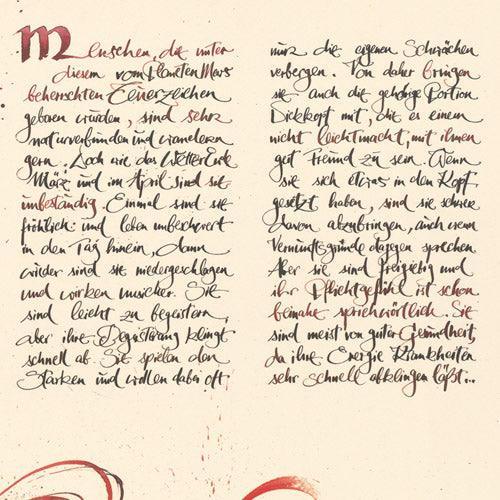 Menschen, die unter
diesem vom Planeten Mars
beherrschten Feuerzeichen
geboren wurden, sind sehr
naturverbunden und wandern
gern. Doch wie das Wetter Ende
März und im April sind sie
unbeständig. Einmal sind sie
fröhlich und leben unbeschwert
in den Tag hinein, dann
wieder sind sie niedergeschlagen
und wirken unsicher. Sie
sind leicht zu begeistern,
aber ihre Begeisterung klingt
schnell ab. Sie spielen den
Starken und wollen dabei oft
nur die eigenen Schwächen
verbergen. Von daher bringen
sie auch die gehörige Portion
Dickkopf mit, die es einem
nicht leicht macht, mit ihnen
gut Freund zu sein. Wenn
sie sich etwas in den Kopf
gesetzt haben, sind sie schwer
davon abzubringen, auch wenn
Vernunftsgründe dagegen sprechen.
Aber sie sind freigiebig und
ihr Pflichtgefühl ist schon
beinahe sprichwörtlich. Sie
sind meist von guter Gesundheit,
da ihre Energie Krankheiten
sehr schnell abklingen läßt...